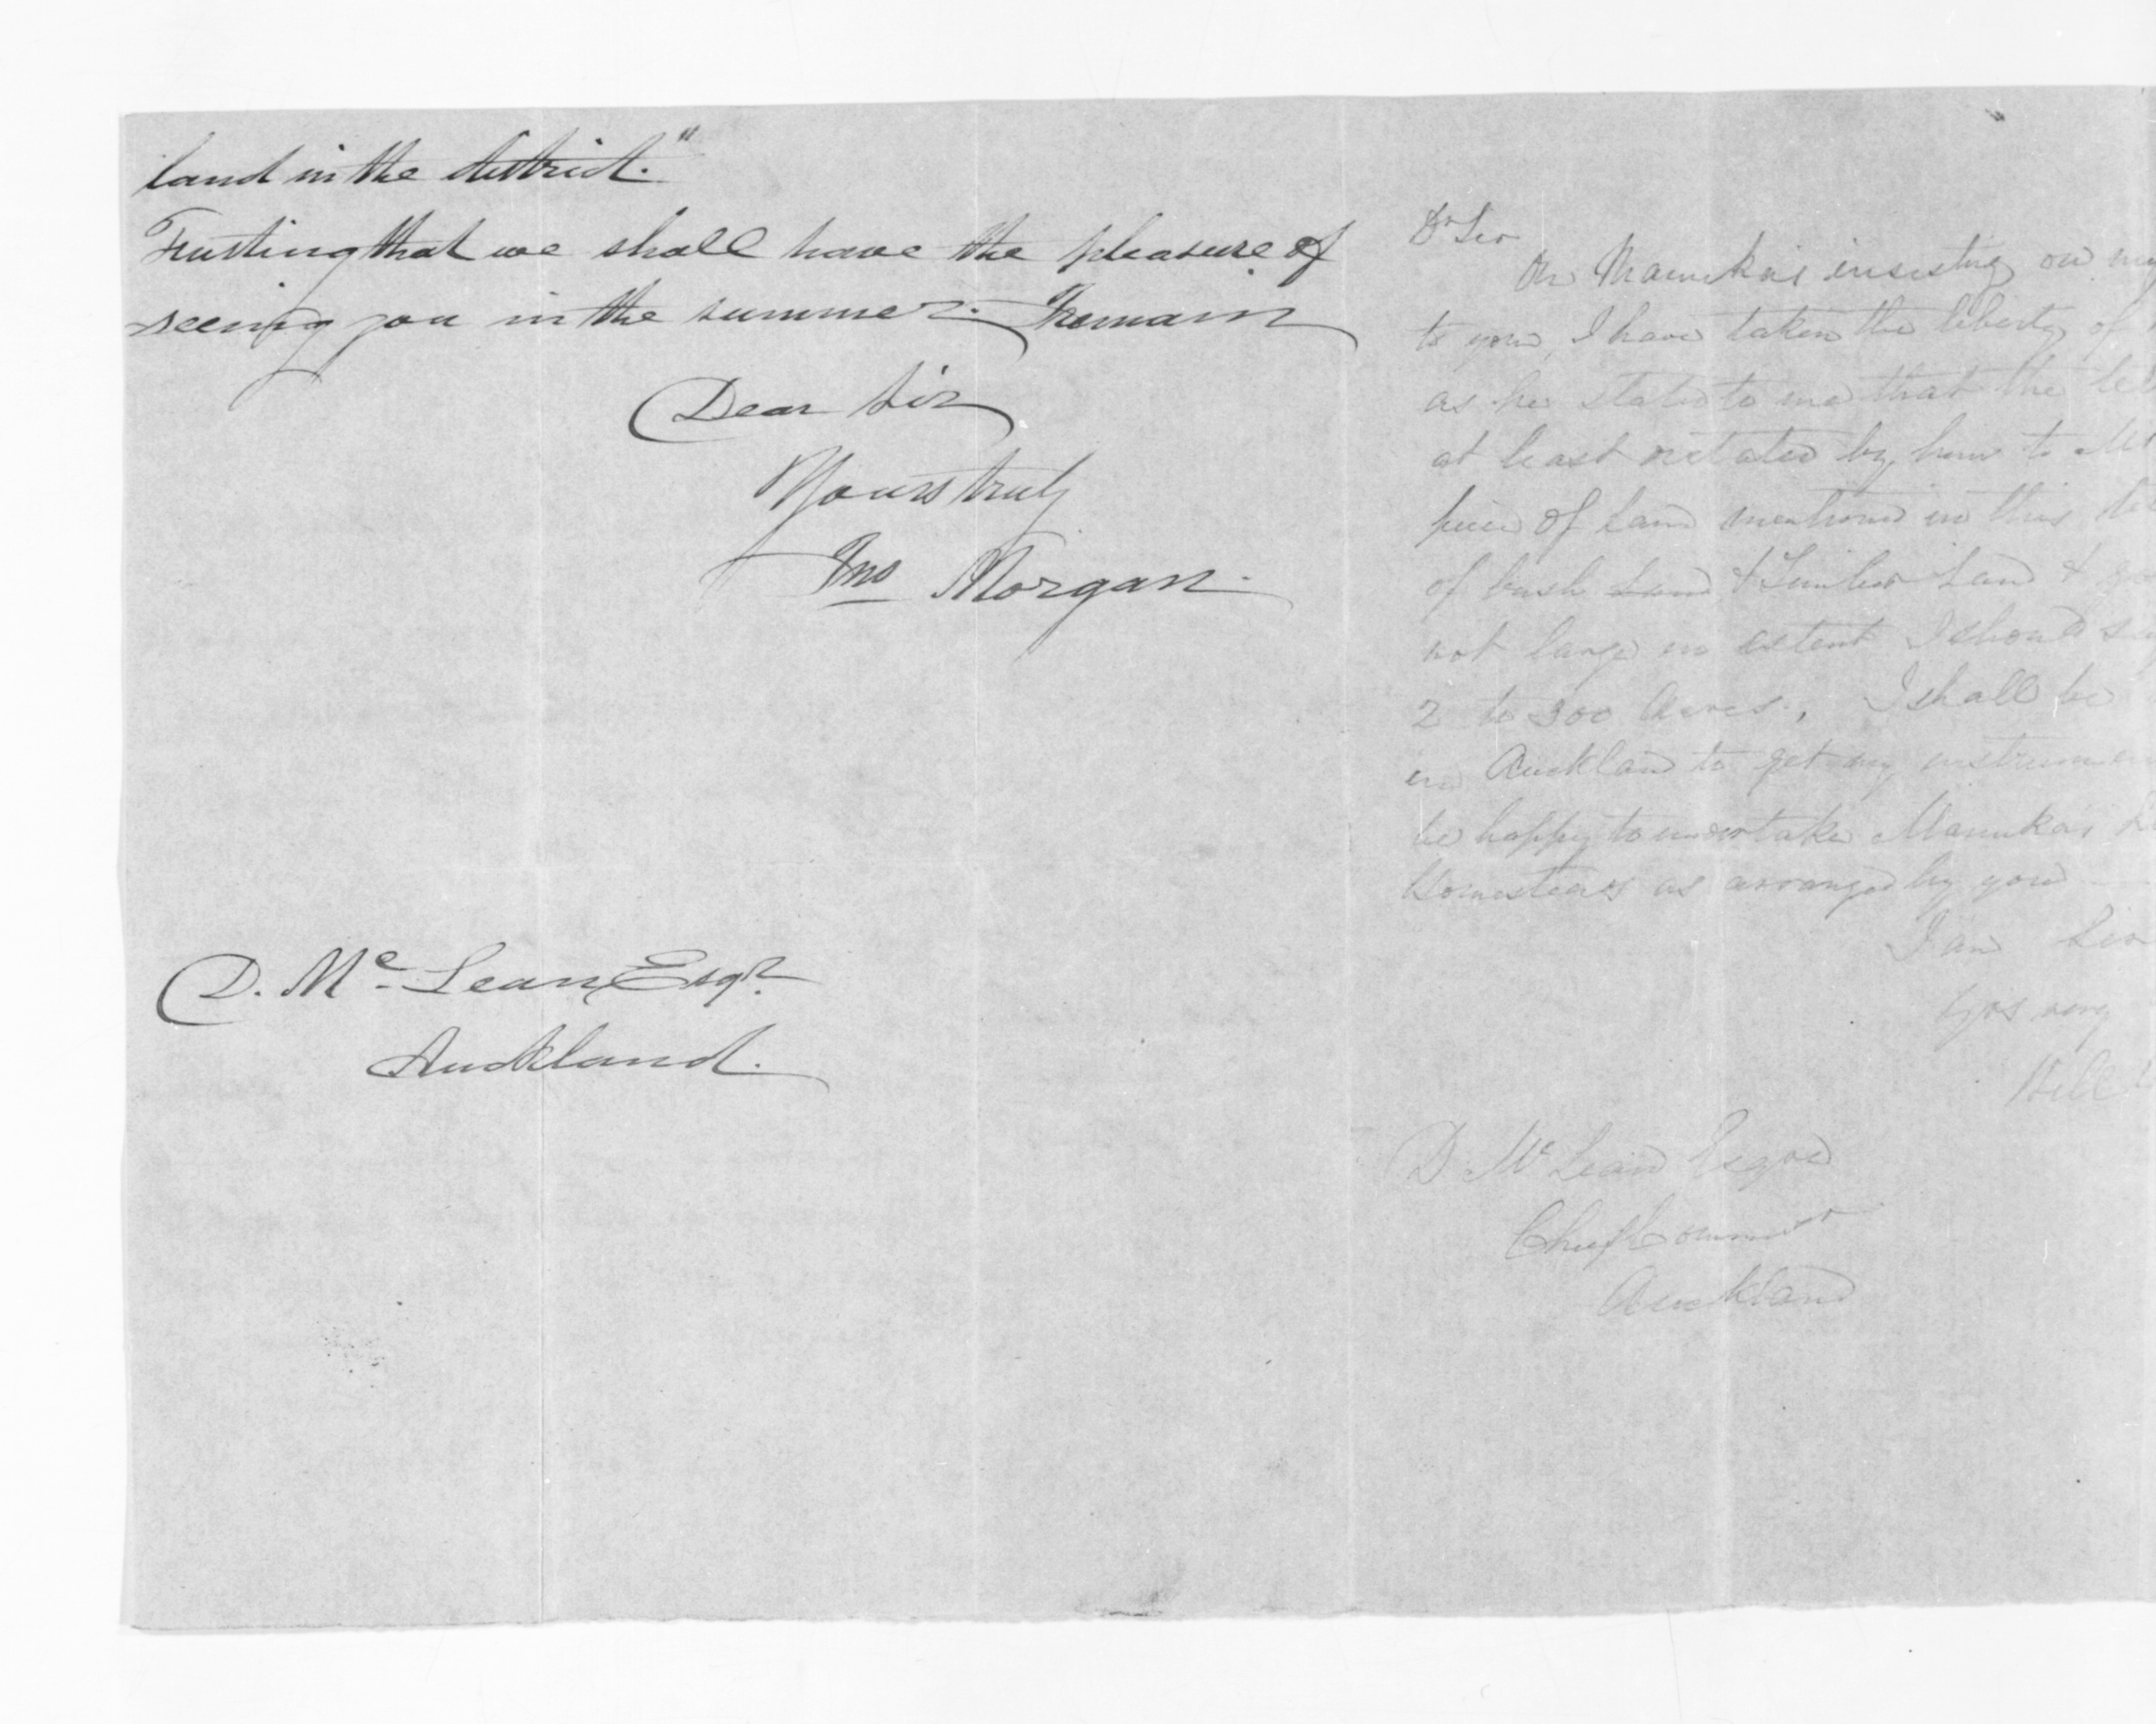 land in the district."
Trusting that we shall have the pleasure of
seeing you in the summer. I remain
Dear Sir
Yours truly
Jno Morgan.
D. Mc Lean, Esqr.
Auckland.
Dr Sir
On Manuka's insisting on my
to you, I have taken the liberty of
as he stated to me that the
at least by him to
piece of land mentioned in this
of bush land & Timber Land &
not large in extent I should
2 to 300 Acres., I shall be
in Auckland to get my
be happy to undertake Manuka's
Homesteads as arranged by you
I am Sir
Yrs very
D McLean Esqre
Chief Commissr
Auckland